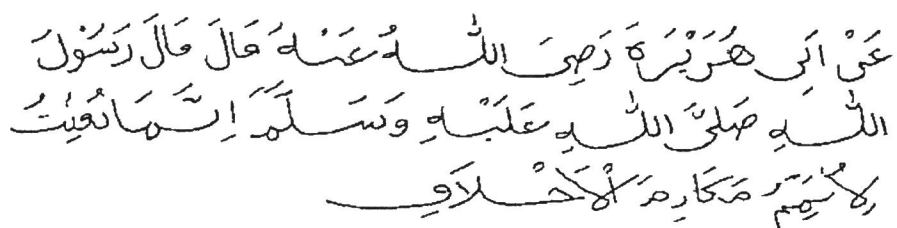 عَنْ اَبِى هُرَيْرَةَ رَضِىَ اللّٰهُ عَنْهُ قَالَ قَالَ رَسُوْلَ
اللّٰهِ صَلَّى اللّٰهِ عَلَيْهِ وَسَلَّمَ اِنَّمَا بُعِثْتُ
لِاُتَمِّمَ مَكَارِمَ الْاَخْلَاقِ